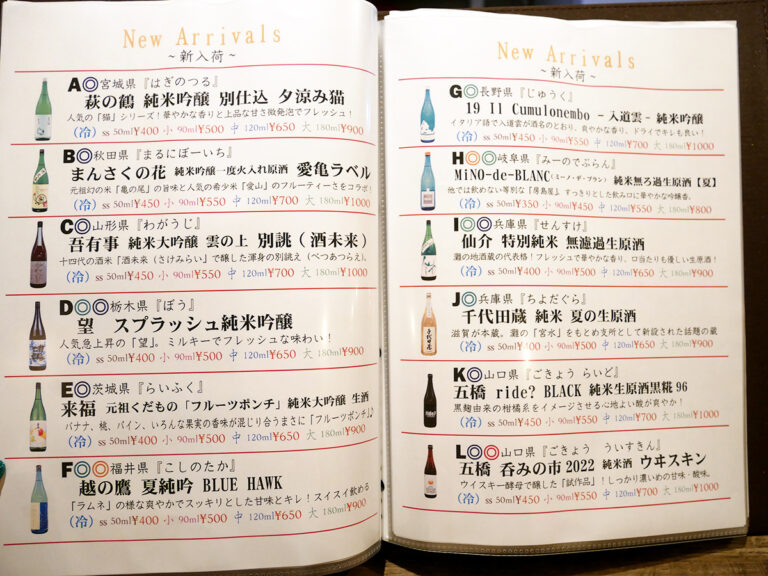 New Arrivals
～新入荷～
A◎宮城県『はぎのつる』
萩の鶴 純米吟醸 別仕込 夕涼み猫
人気の「猫」シリーズ！華やかな香りと上品な甘さ微発泡でフレッシュ！
(冷) ss 50ml¥400 小 90ml¥500 中 120ml¥650 大 180ml¥900
B◎秋田県『まるにぼーいち』
まんさくの花 純米吟醸一度火入れ原酒 愛亀ラベル
元祖幻の米「亀の尾」の旨味と人気の希少米「愛山」のフルーティーさをコラボ！
(冷) ss 50ml¥450 小 90ml¥550 中 120ml¥700 大 180ml¥1000
C◎山形県『わがうじ』
吾有事 純米大吟醸 雲の上 別誂（酒未来）
十四代の酒米「酒未来（さけみらい）」で醸した渾身の別誂え（べつあつらえ）。
(冷) ss 50ml¥450 小 90ml¥550 中 120ml¥700 大 180ml¥1000
D◎◎栃木県『ぼう』
望 スプラッシュ純米吟醸
人気急上昇の「望」。ミルキーでフレッシュな味わい！
(冷) ss 50ml¥400 小 90ml¥500 中 120ml¥650 大 180ml¥900
E◎茨城県『らいふく』
来福 元祖くだもの「フルーツポンチ」純米大吟醸 生酒
バナナ、桃、パイン、いろんな果実の香味が混じり合うまさに「フルーツポンチ」♪
(冷) ss 50ml¥400 小 90ml¥500 中 120ml¥650 大 180ml¥900
F◎◎福井県『こしのたか』
越の鷹 夏純吟 BLUE HAWK
「ラムネ」の様な爽やかでスッキリとした甘味とキレ！スイスイ飲める
(冷) ss 50ml¥400 小 90ml¥500 中 120ml¥650 大 180ml¥900
New Arrivals
～新入荷～
G◎長野県『じゅうく』
19 Il Cumulonembo - 入道雲 - 純米吟醸
イタリア語で入道雲が酒名のとおり、爽やかな香り、ドライでキレも良い！
(冷) ss 50ml¥450 小 90ml¥550 中 120ml¥700 大 180ml¥1000
H◎◎岐阜県『みーのでぶらん』
MiNO-de-BLANC(ミーノ・デ・ブラン) 純米無ろ過生原酒【夏】
他では飲めない等別な「房島屋」すっきりとした飲み口に華やかな吟醸香。
(冷) ss 50ml¥350 小 90ml¥450 中 120ml¥550 大 180ml¥800
I◎◎兵庫県『せんすけ』
仙介 特別純米 無濾過生原酒
灘の地酒蔵の代表格！フレッシュで華やかな香り、口当たりも優しい生原酒！
(冷) ss 50ml¥400 小 90ml¥500 中 120ml¥650 大 180ml¥900
J◎兵庫県『ちよだぐら』
千代田蔵 純米 夏の生原酒
滋賀が本蔵。灘の「宮水」をもとめ支所として新設された話題の蔵
(冷) ss 50ml¥400 小 90ml¥500 中 120ml¥650 大 180ml¥900
K◎山口県『ごきょう らいど』
五橋 ride? BLACK 純米生原酒黒糀 96
黒麹由来の柑橘系をイメージさせる心地よい酸が爽やか！
(冷) ss 50ml¥450 小 90ml¥550 中 120ml¥700 大 180ml¥1000
L◎◎山口県『ごきょう ういすきん』
五橋 呑みの市 2022 純米酒 ウヰスキン
ウイスキー酵母で醸した「試作品」！しっかり濃いめの甘味・酸味。
(冷) ss 50ml¥450 小 90ml¥550 中 120ml¥700 大 180ml¥1000